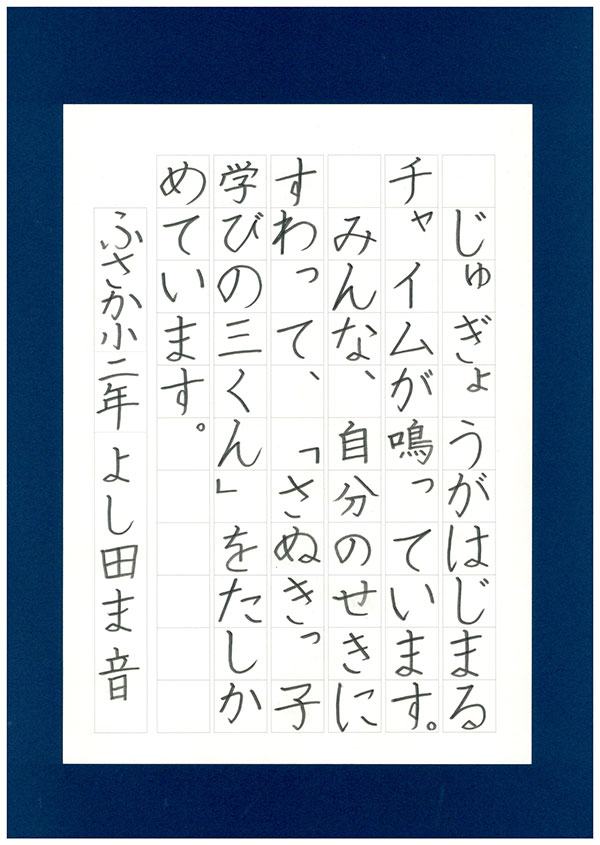 じゅぎょうがはじまる
チャイムが鳴っています。
みんな、自分のせきに
すわって、「さぬきっ子
学びの三くん」をたしか
めています。
ふさか小二年 よし田ま音